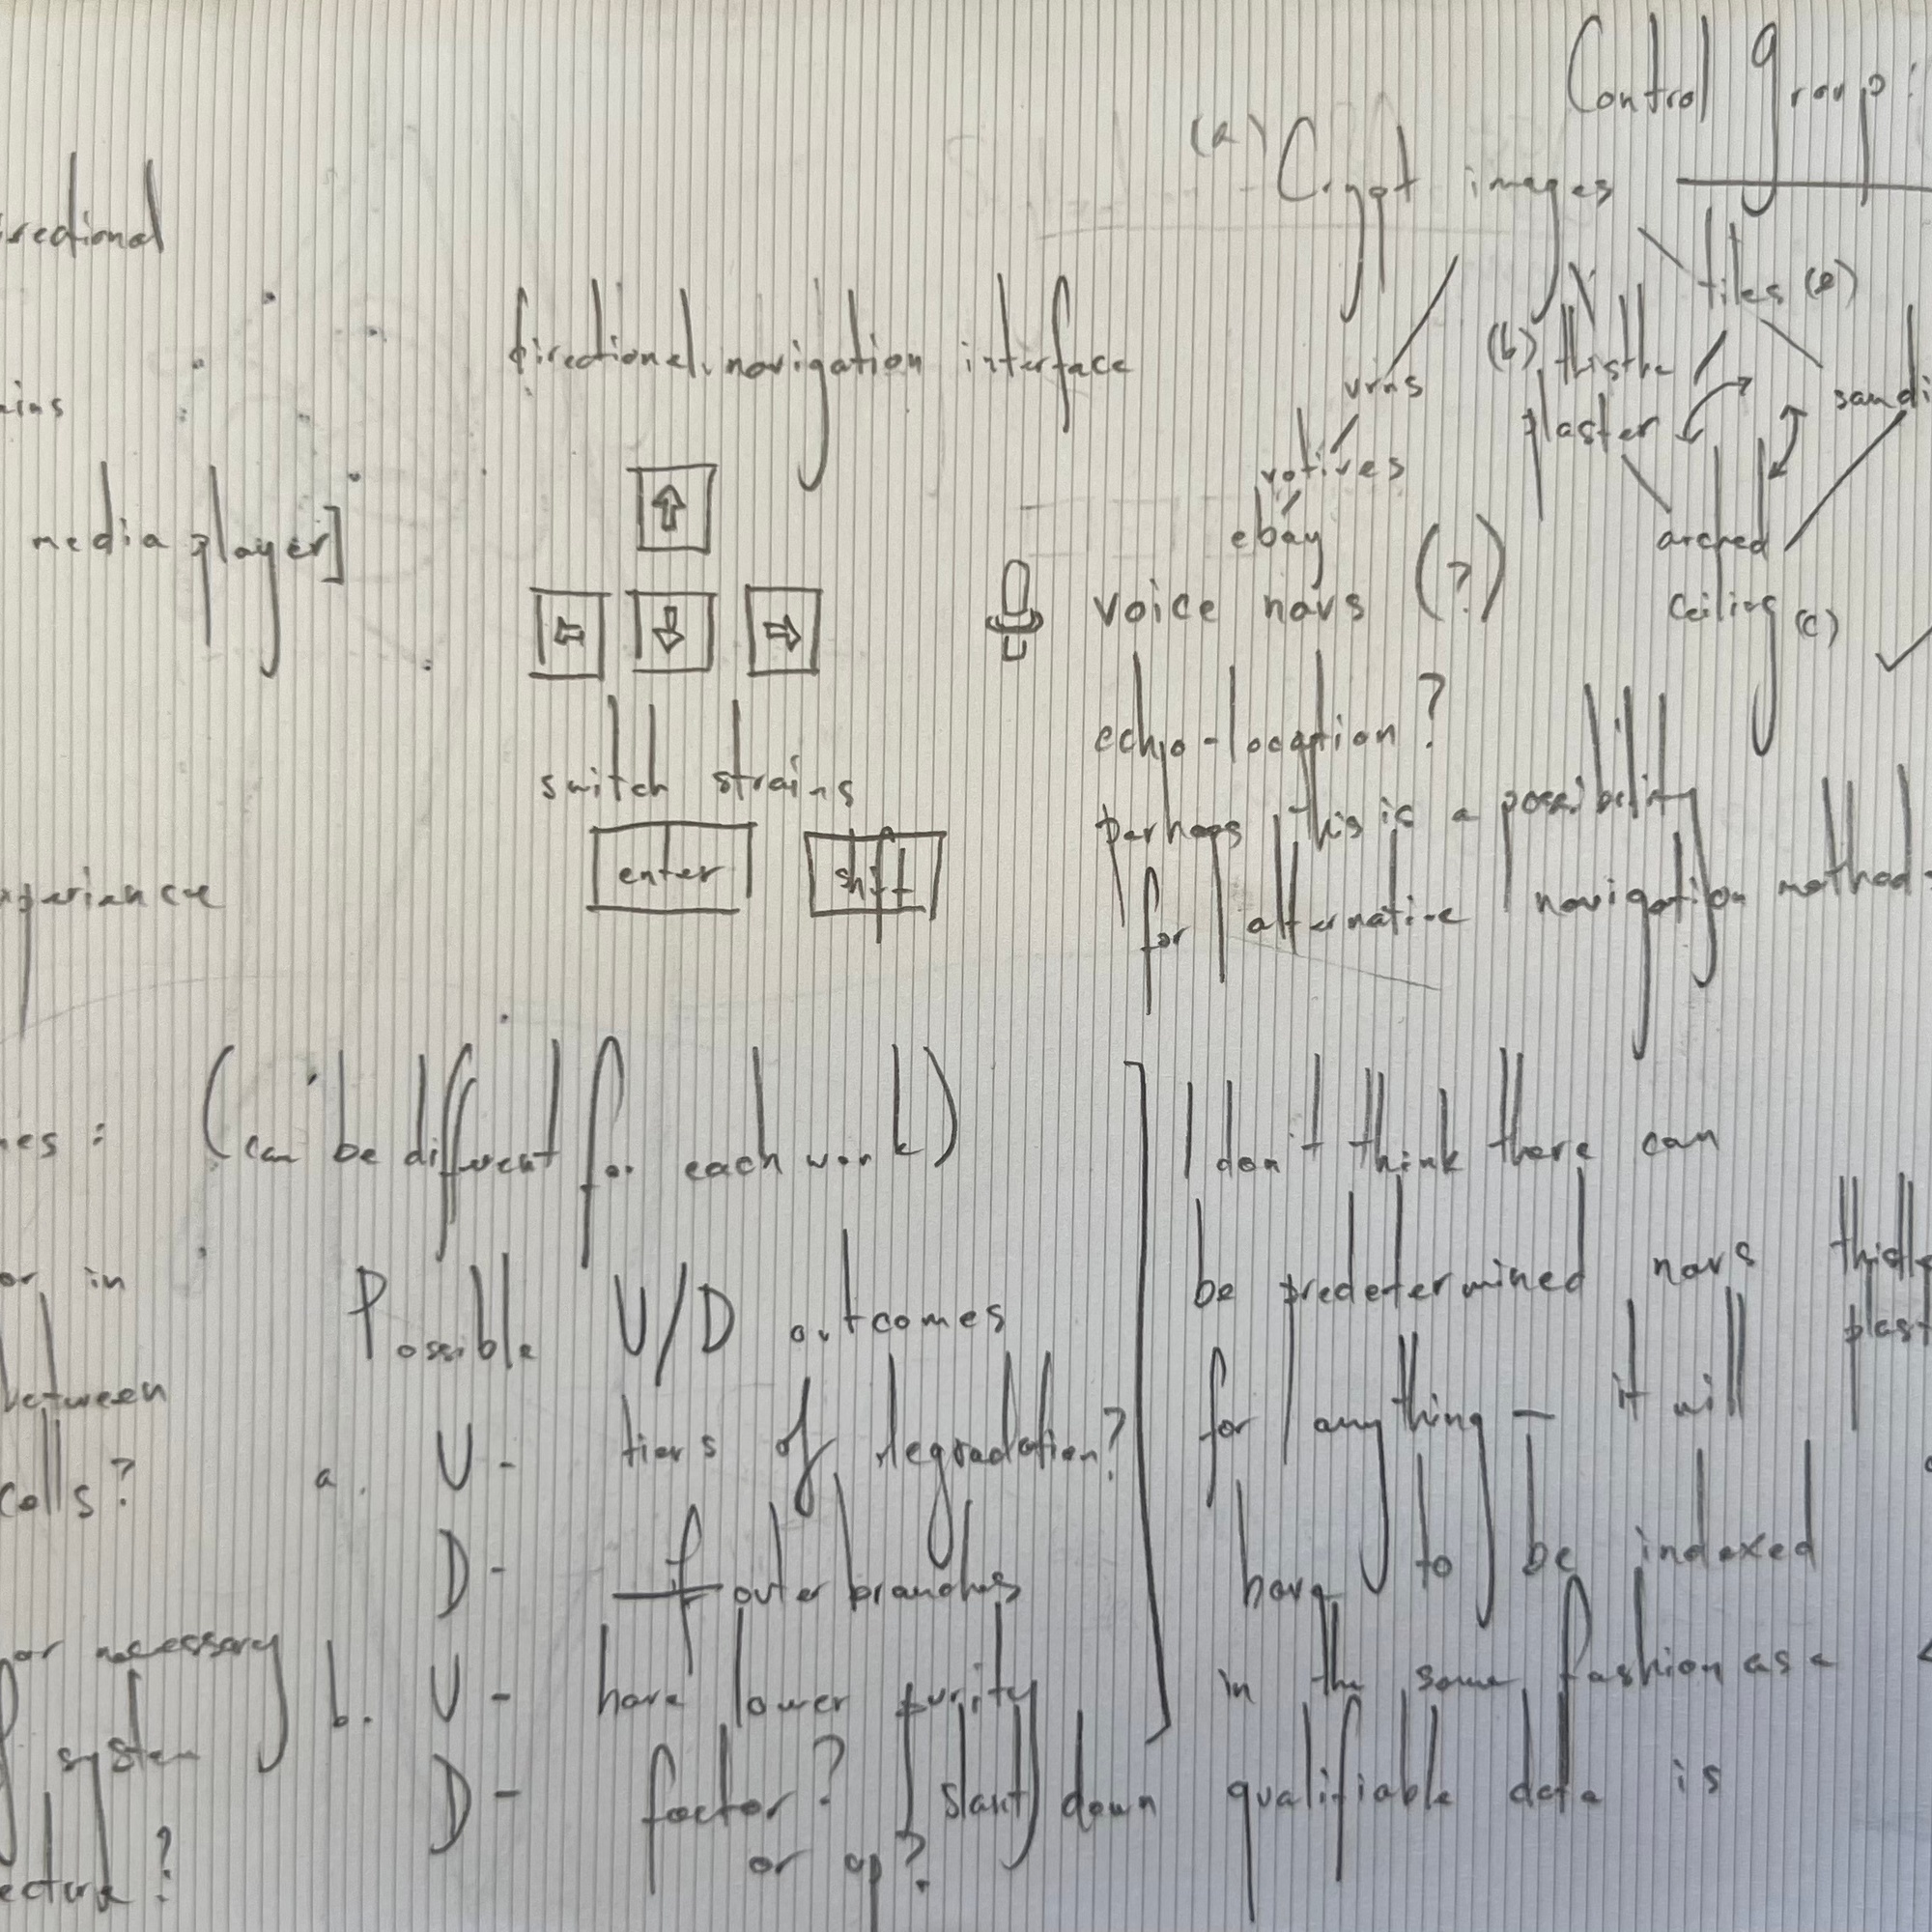 Control group:
(a) Crypt images
tiles (e)
(b) thistle
plaster
sandi
urns
votives
ebay
arched
ceiling (c)
irectional
ains
media player]
directional navigation interface
switch strains
enter
shift
voice navs (?)
echo-location?
perhaps this is a possibility
for alternative navigation method
xperience
nes : (can be different for each work)
or in
between
cells?
or necessary
system
ecture?
Possible U/D outcomes
a. U - tiers of degradation?
D - if outer branches
b. U - have lower purity
D - factor? slant down
or up?
I don't think there can
be predetermined navs
for anything — it will
have to be indexed
in the same fashion as a
qualifiable data is
thistle
plast